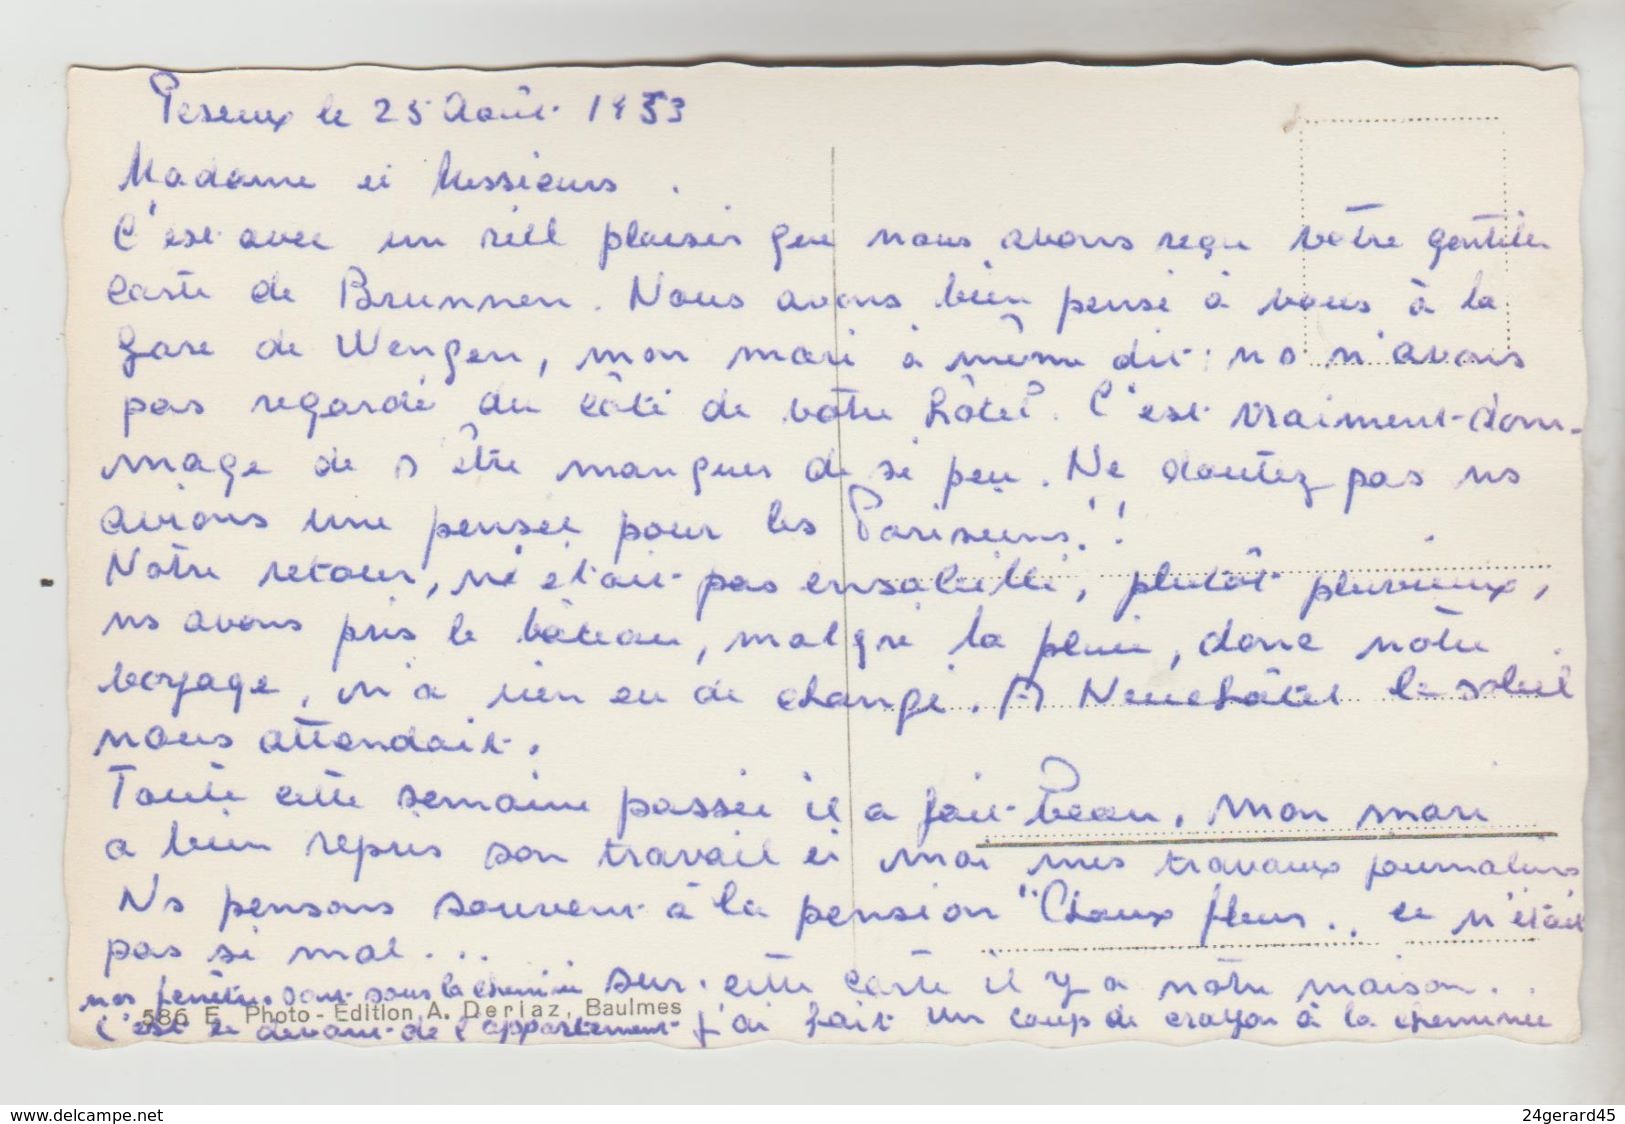 Peseux le 25 Août 1953
Madame et Messieurs.
C'est avec un réel plaisir que nous avons reçu votre gentille
carte de Brunnen. Nous avons bien pensé à vous à la
gare de Wengen, mon mari à même dit: ns n'avons
pas regardé du côté de votre hôtel. C'est vraiment dom-
mage de s'être manquer de si peu. Ne doutez pas ns
avions une pensée pour les Parisiens!!
Notre retour, n'était pas ensoleillé, plutôt pluvieux,
ns avons pris le bâteau, malgré la pluie, donc notre
voyage, n'a rien eu de changé. A Neuchâtel le soleil
nous attendait.
Toute cette semaine passée il a fait beau. Mon mari
a bien repris son travail et moi mes travaux journaliers
Ns pensons souvent à la pension "Choux fleurs.. ce n'était
pas si mal...
Sur cette carte il y a notre maison..
j'ai fait un coup de crayon à la cheminée
nos fenêtres sont sous la cheminée
c'est le devant de l'appartement
586 E Photo-Edition A. Deriaz, Baulmes
www.delcampe.net
24gerard45